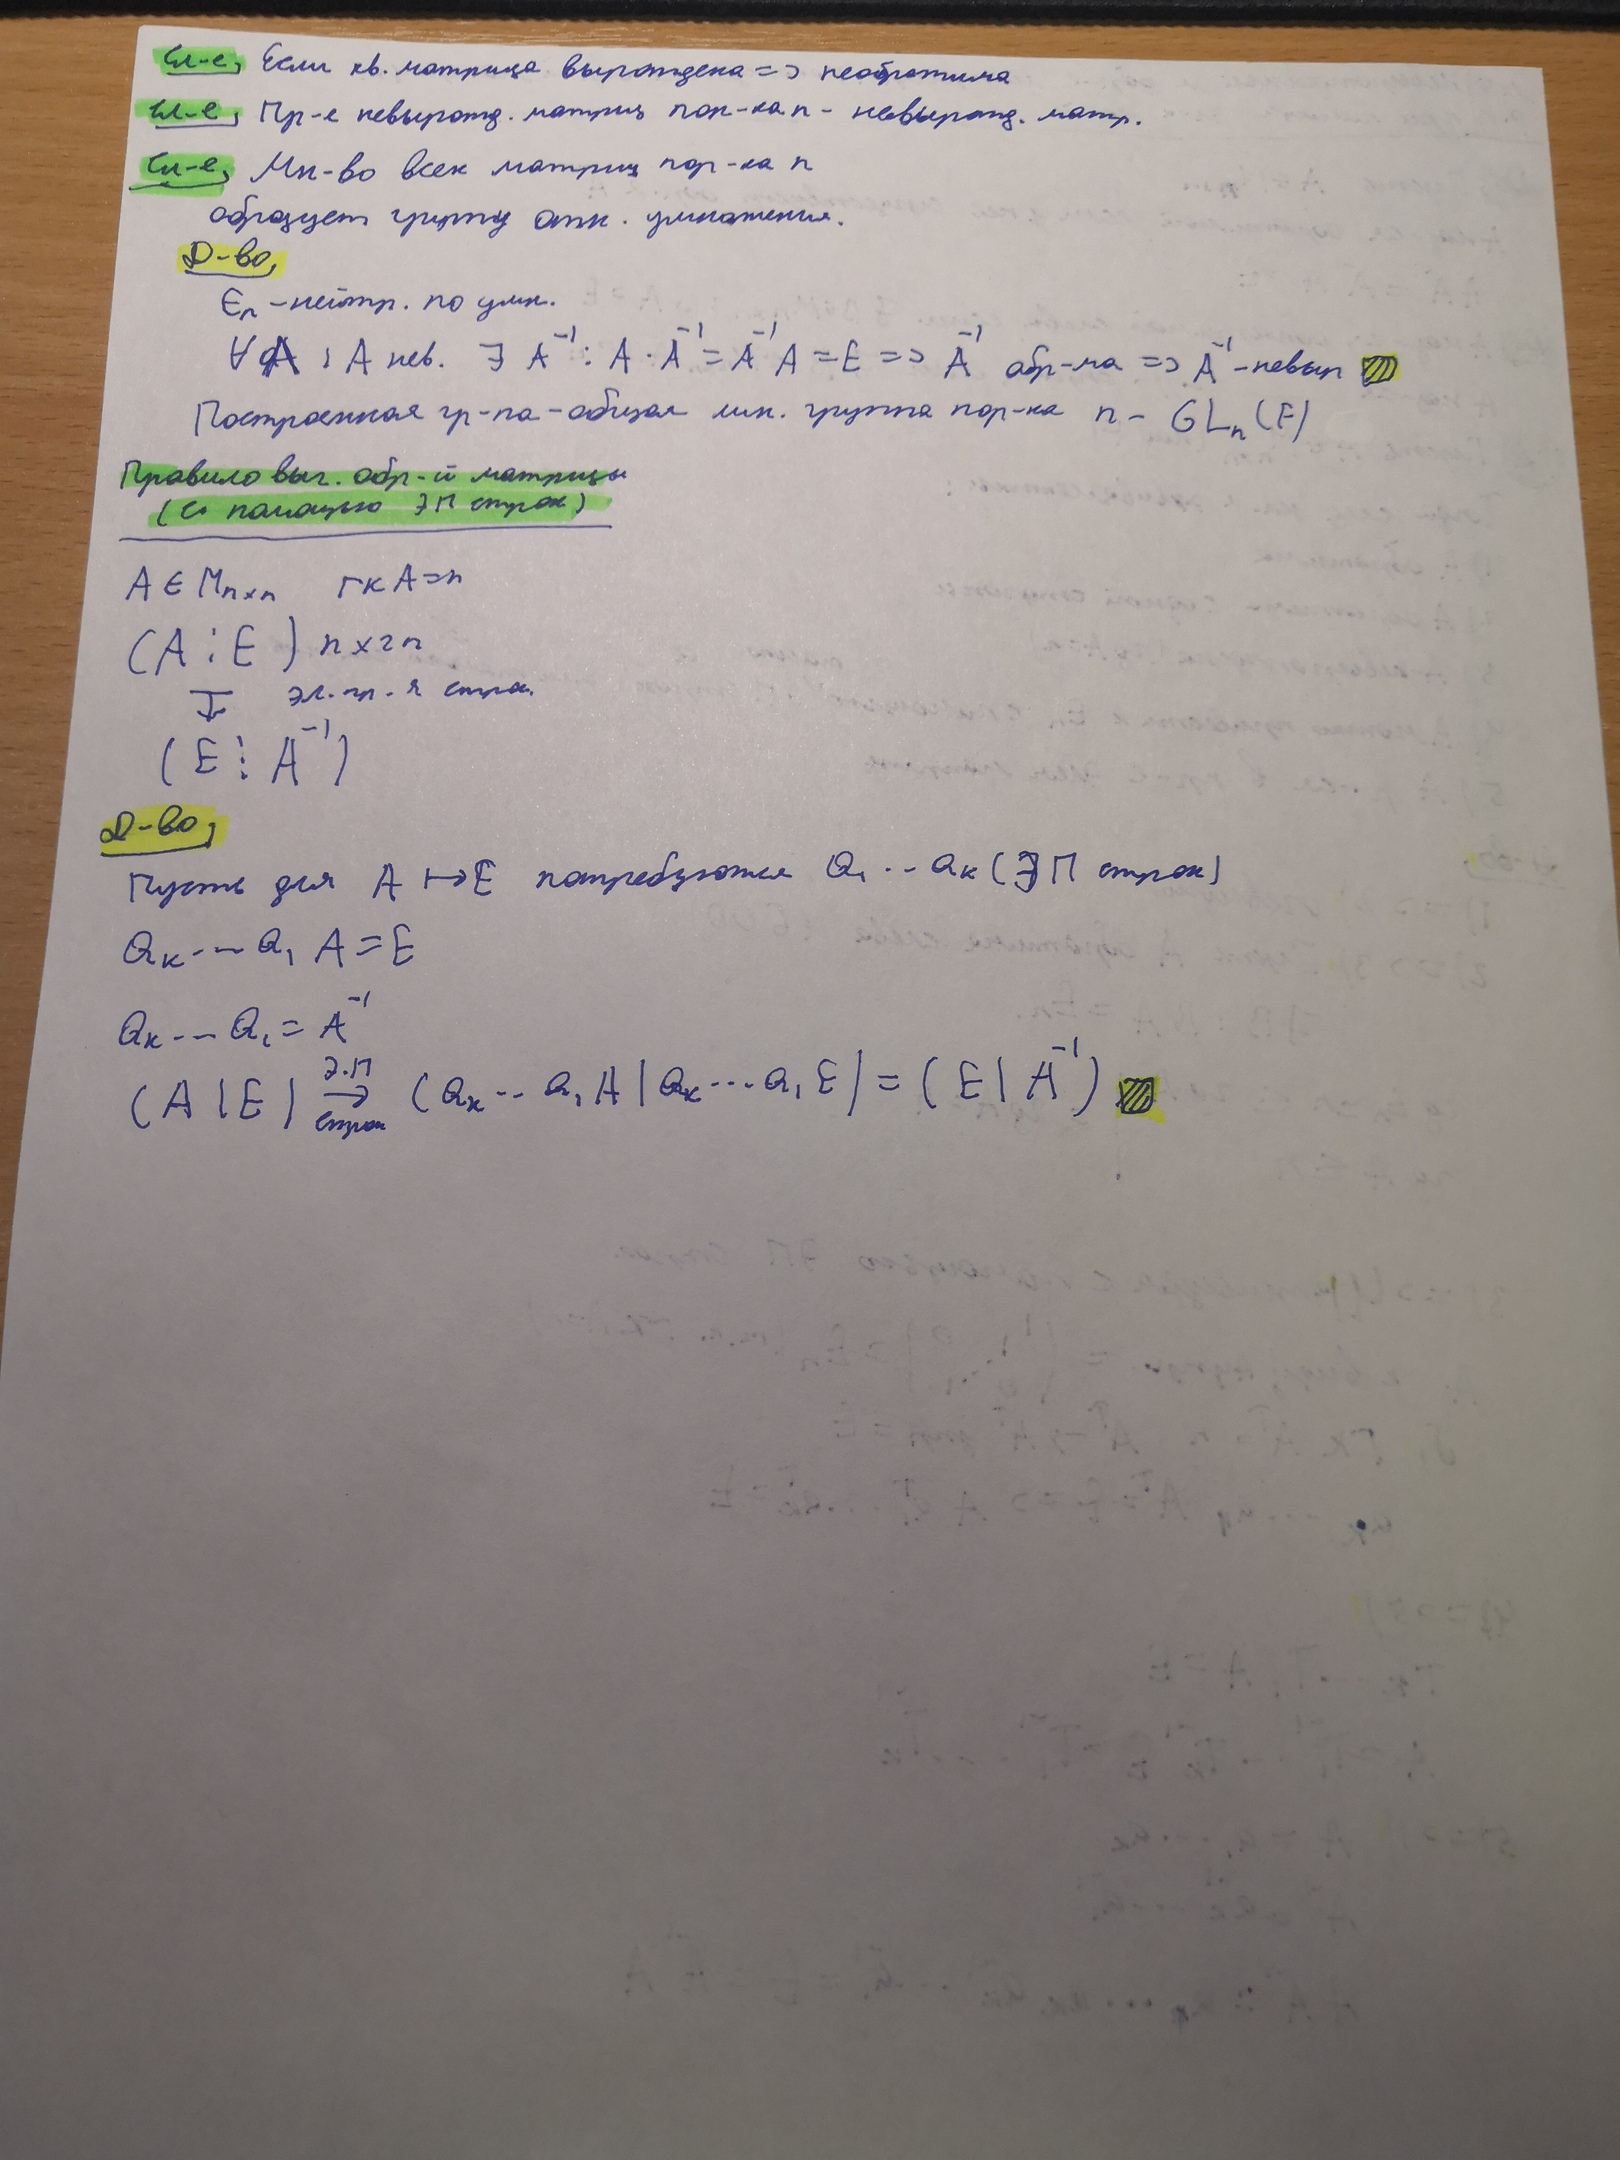 Сл-е, Если кв. матрица вырождена => необратима
Сл-е, Пр-е невырожд. матриц пор-ка n - невырожд. матр.
Сл-е, Мн-во всех матриц пор-ка n
образует группу отн. умножения.
Д-во,
Eₙ - нейтр. по умн.
∀ A : A нев. ∃ A⁻¹ : A · A⁻¹ = A⁻¹ A = E => A⁻¹ обр-ма => A⁻¹ - невыр
Построенная гр-па - общая лин. группа пор-ка n - GLₙ(F)
Правило выч. обр-й матрицы
(с помощью ЭП строк)
A ∈ Mₙₓₙ rk A = n
(A ⋮ E) n x 2n
↧ эл. пр-я строк.
(E ⋮ A⁻¹)
Д-во,
Пусть для A ↦ E потребуются Q₁ ... Qₖ (ЭП строк)
Qₖ ... Q₁ A = E
Qₖ ... Q₁ = A⁻¹
(A | E) Э.П → строк (Qₖ ... Q₁ A | Qₖ ... Q₁ E) = (E | A⁻¹)